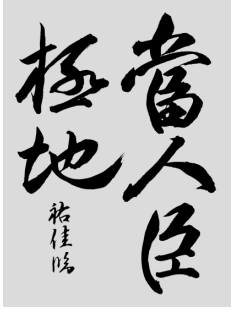 當人臣
極地
祐佳